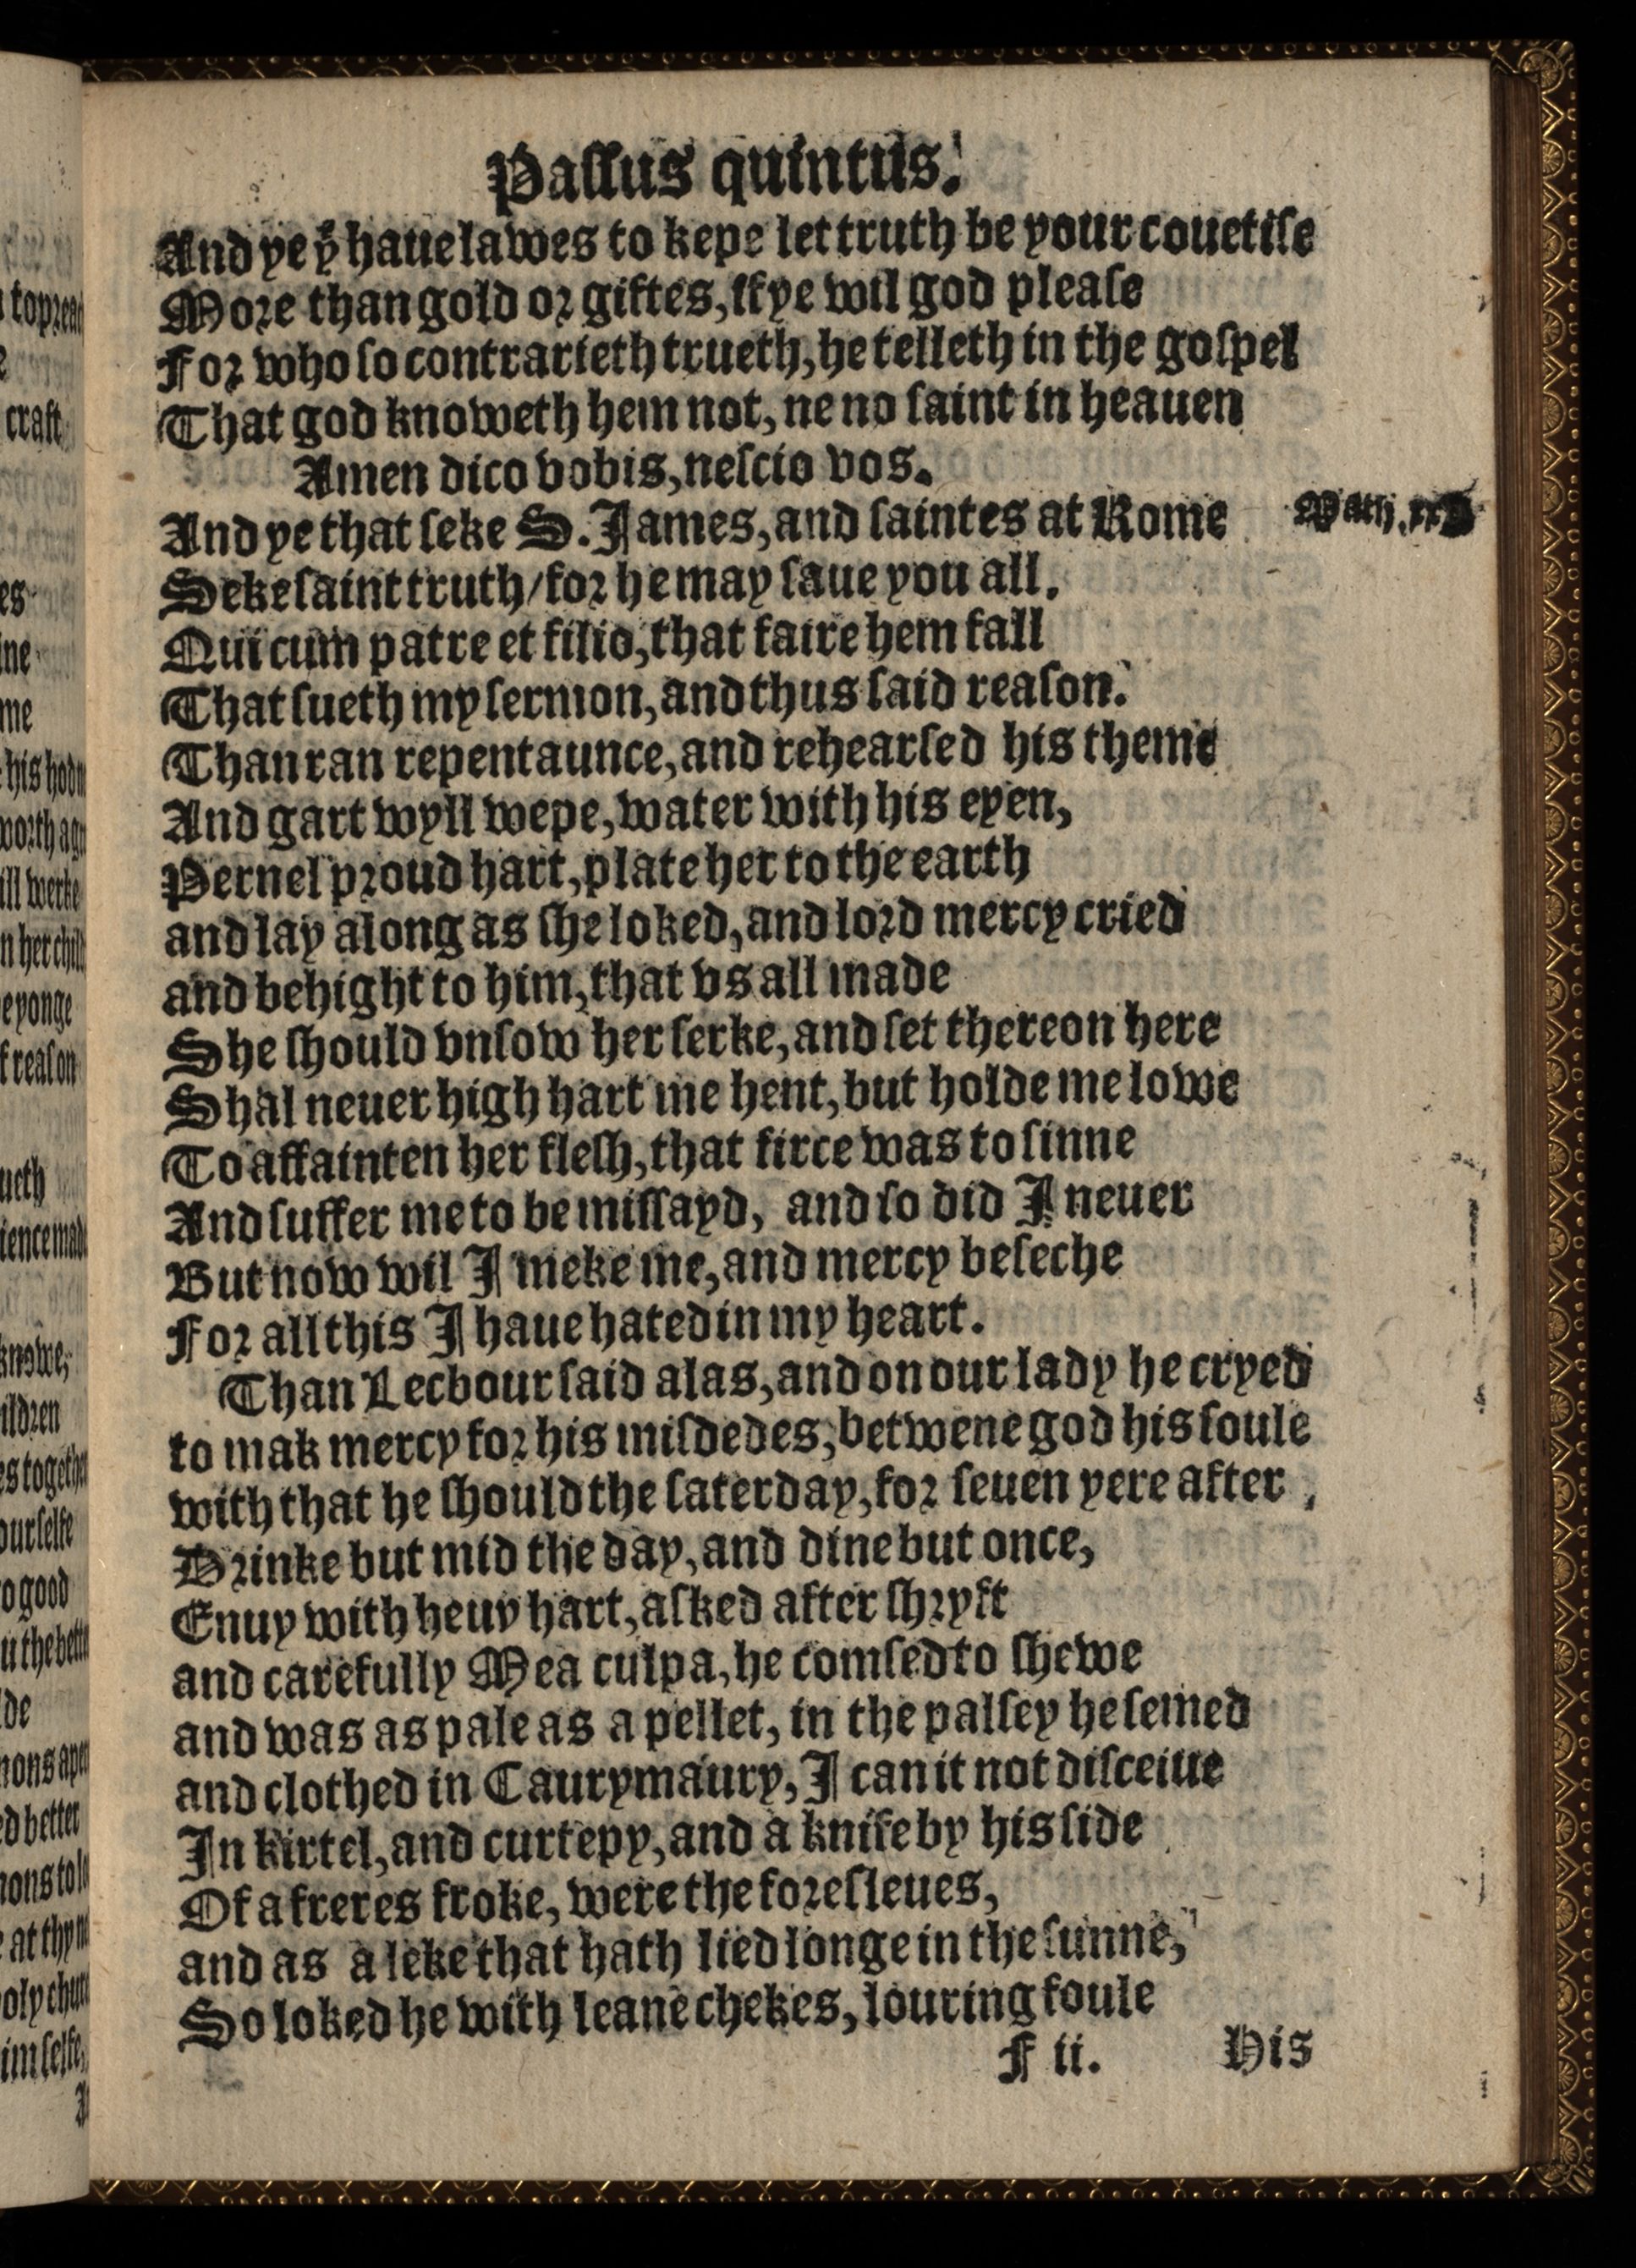 Paſſus quintus.
And ye yͭ haue lawes to kepe let truth be your couetiſe
More than gold or giftes, if ye wil god pleaſe
For who ſo contrarieth trueth, he telleth in the goſpel
That god knoweth hem not, ne no ſaint in heauen
Amen dico vobis, neſcio vos.
And ye that ſeke S. James, and ſaintes at Rome
Math. xxv
Seke ſaint truth / for he may ſaue you all.
Qui cum patre et filio, that faire hem fall
That ſueth my ſermon, and thus ſaid reaſon.
Than ran repentaunce, and rehearſed his theme
And gart wyll wepe, water with his eyen,
Pernel proud hart, plate her to the earth
and lay along as ſhe loked, and lord mercy cried
and behight to him, that vs all made
She ſhould vnſow her ſerke, and ſet thereon here
Shal neuer high hart me hent, but holde me lowe
To affainten her fleſh, that firce was to ſinne
And ſuffer me to be miſſayd, and ſo did I neuer
But now wil I meke me, and mercy beſeche
For all this I haue hated in my heart.
Than Lecbour ſaid alas, and on our lady he cryed
to mak mercy for his miſdedes, betwene god his ſoule
with that he ſhould the ſaterday, for ſeuen yere after,
Drinke but mid the day, and dine but once,
Enuy with heuy hart, aſked after ſhryft
and carefully Mea culpa, he comſed to ſhewe
and was as pale as a pellet, in the palſey he ſemed
and clothed in Caurymaury, I can it not diſceiue
In kirtel, and curtepy, and a knife by his ſide
Of a freres froke, were the foreſleues,
and as a leke that hath lied longe in the ſunne,
So loked he with leane chekes, louring foule
F ii. His